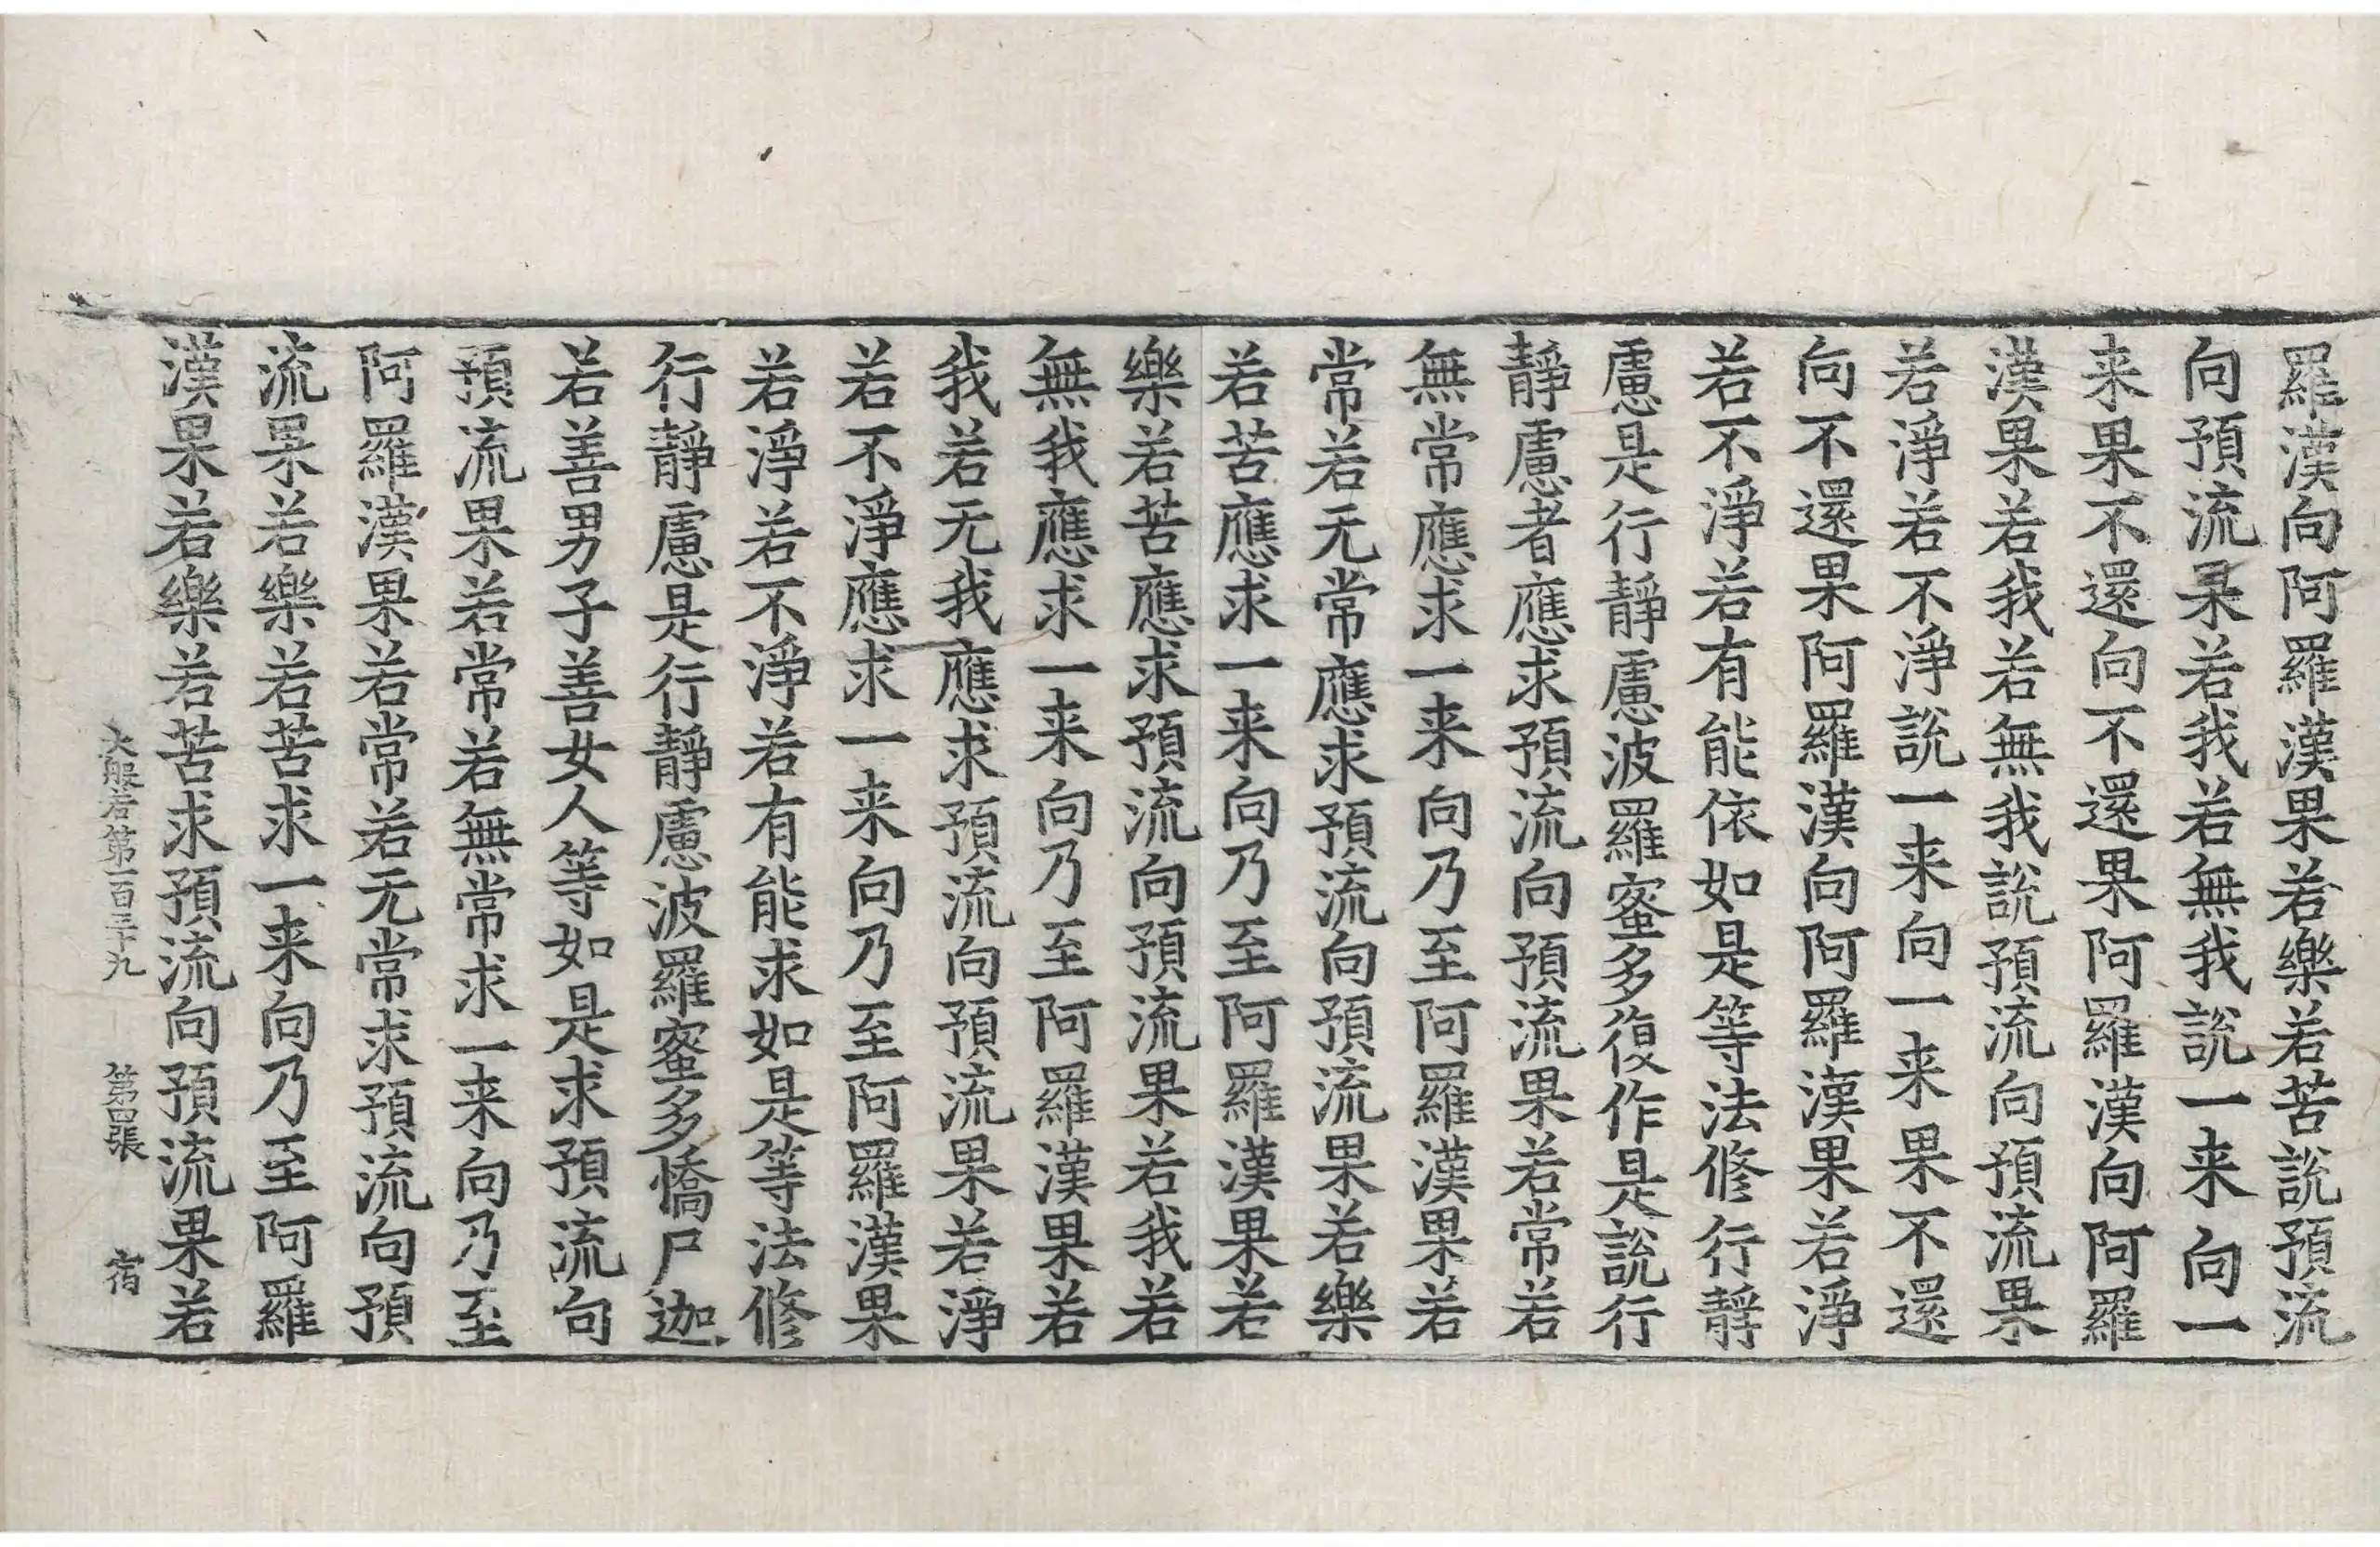 羅漢向阿羅漢果若樂若苦說預流
向預流果若我若無我說一来向一
来果不還向不還果阿羅漢向阿羅
漢果若我若無我說預流向預流果
若淨若不淨說一来向一来果不還
向不還果阿羅漢向阿羅漢果若淨
若不淨若有能依如是等法修行靜
慮是行靜慮波羅蜜多復作是說行
靜慮者應求預流向預流果若常若
無常應求一来向乃至阿羅漢果若
常若无常應求預流向預流果若樂
若苦應求一来向乃至阿羅漢果若
樂若苦應求預流向預流果若我若
無我應求一来向乃至阿羅漢果若
我若无我應求預流向預流果若淨
若不淨應求一来向乃至阿羅漢果
若淨若不淨若有能求如是等法修
行靜慮是行靜慮波羅蜜多憍尸迦
若善男子善女人等如是求預流向
預流果若常若無常求一来向乃至
阿羅漢果若常若无常求預流向預
流果若樂若苦求一来向乃至阿羅
漢果若樂若苦求預流向預流果若
大般若第一百三十九 第四張 宿